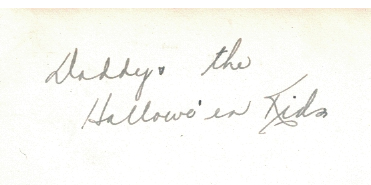 Daddy. the
Hallowe'en Kids